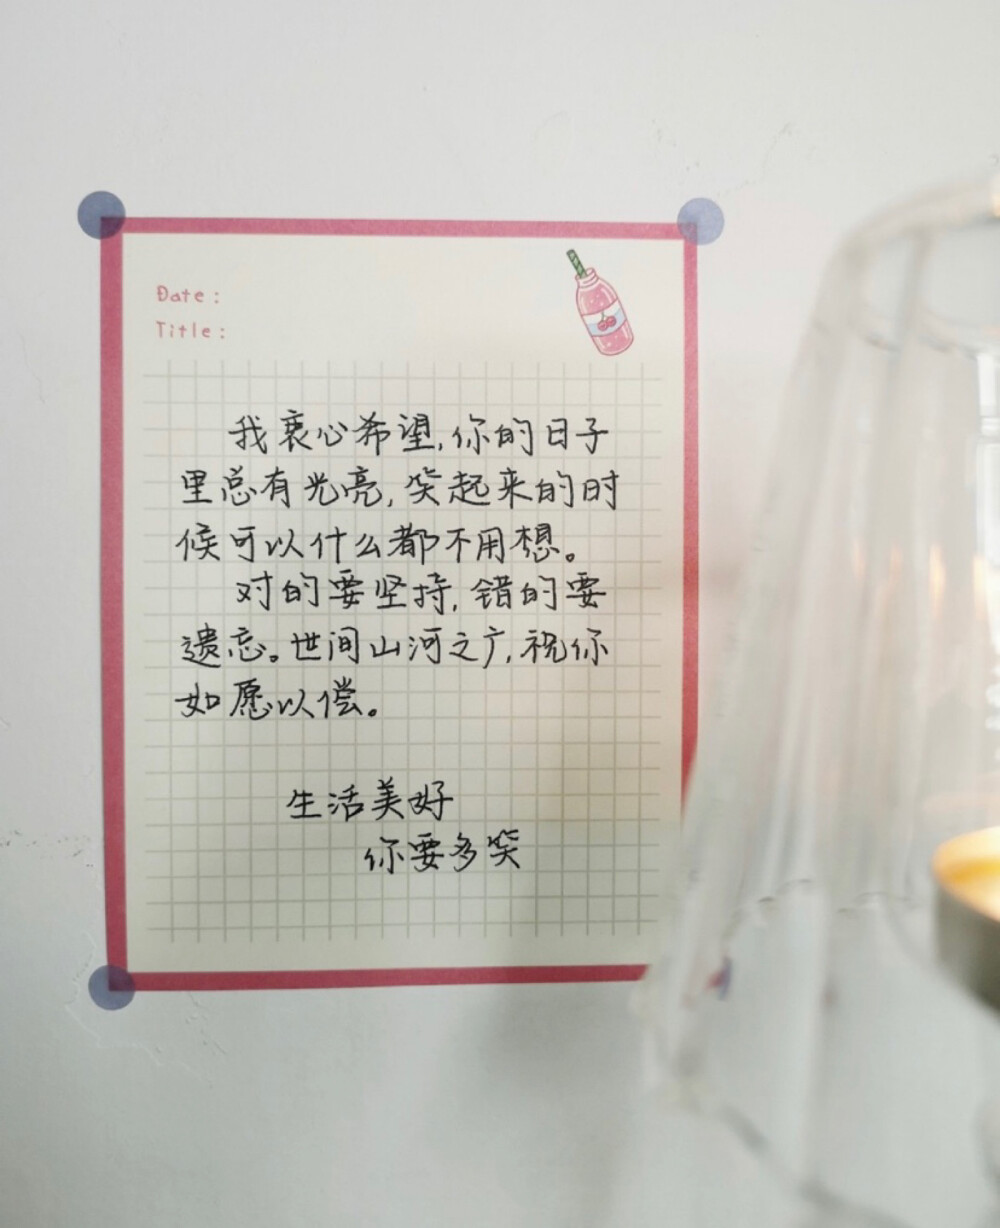 Date:
Title:
我衷心希望,你的日子
里总有光亮,笑起来的时
候可以什么都不用想。
对的要坚持,错的要
遗忘。世间山河之广,祝你
如愿以偿。
生活美好
你要多笑